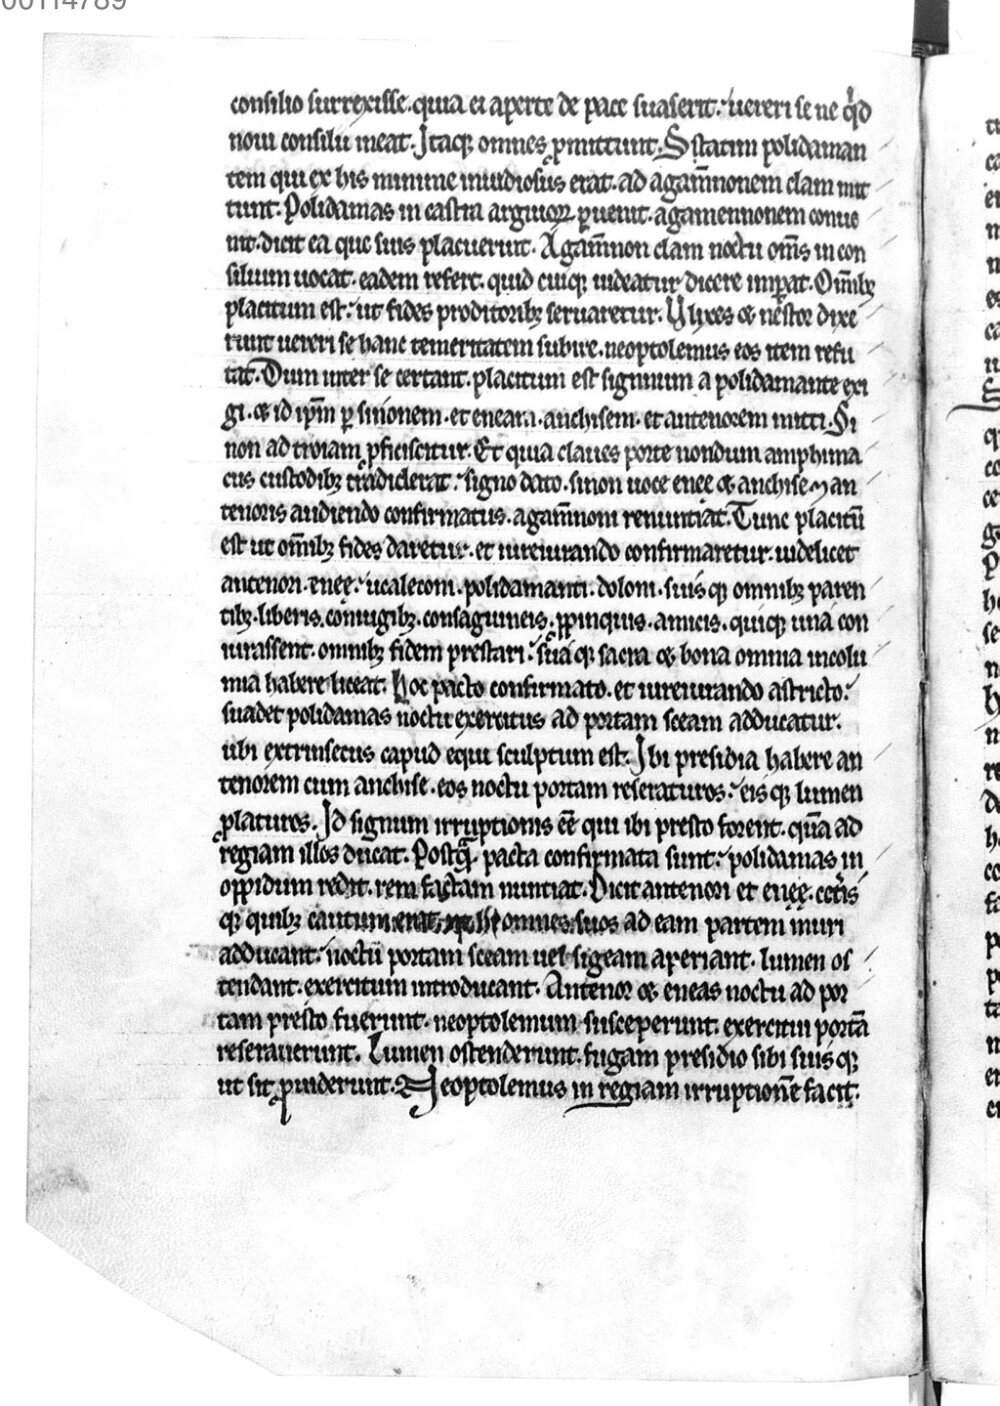 00114789
consilio surrexisse. quia ei aperte de pace suaserit. uereri se ne qͥd
noui consilii ineat. Itaqꝫ omnes ꝓmittunt. Statim polidaman
tem qui ex his minime inuidiosus erat. ad agam̅nonem clam mit
tunt. Polidamas in castra arguioꝝ ꝑuenit. agamennonem conue
nit. dicit ea que suis placuerunt. Agam̅non clam noctu om̅s in con
silium uocat. eadem refert. quid cuiqꝫ uideatur dicere imꝑat. Om̅ibꝫ
placitum est. ut fides proditoribꝫ seruaretur. Vlixes ⁊ nestor dixe
runt uereri se hanc temeritatem subire. neoptolemus eos item refu
tat. Dum inter se certant. placitum est signum a polidamante exi
gi. ⁊ id ip̅m ꝑ sinonem. et eneam. anchisem. et antenorem mitti. Si
non ad troiam ꝓficiscitur. Et quia claues porte nondum amphima
cus custodibꝫ tradiderat. signo dato. sinon uoce enee ⁊ anchise ⁊ an
tenoris audiendo confirmatus. agam̅noni renuntiat. Tunc placitu̅
est ut om̅ibꝫ fides daretur. et iureiurando confirmaretur. uidelicet
antenori. enee. ucalegoni. polidamanti. doloni. suis qꝫ omnibꝫ paren
tibꝫ. liberis. coniugibꝫ. consaguineis. ꝓpinquis. amicis. quiqꝫ una con
iurassent. omnibꝫ fidem prestari. sua qꝫ sacra ⁊ bona omnia incolu
mia habere liceat. Hoc pacto confirmato. et iureiurando astricto.
suadet polidamas noctu exercitus ad portam sceam adducatur.
ubi extrinsecus capud equi sculptum est. Ibi presidia habere an
tenorem cum anchise. eos noctu portam reseraturos. eis qꝫ lumen
ꝓlaturos. Id signum irruptionis ee̅ qui ibi presto forent. qua̅ ad
regiam illos ducat. Postꝗ̅ pacta confirmata sunt. polidamas in
oppidum redit. rem factam nuntiat. Dicit antenori et enee. cet̅is
qꝫ quibꝫ cautum erat omnes suos ad eam partem muri
adducant. noctu̅ portam sceam uel sigeam aperiant. lumen os
tendant. exercitum introducant. Antenor ⁊ eneas noctu ad por
tam presto fuerunt. neoptolemum susceperunt. exercitui porta̅
reserauerunt. Lumen ostenderunt. fugam presidio sibi suis qꝫ
ut sit ꝓuiderunt. Neoptolemus in regiam irruptione̅ facit.